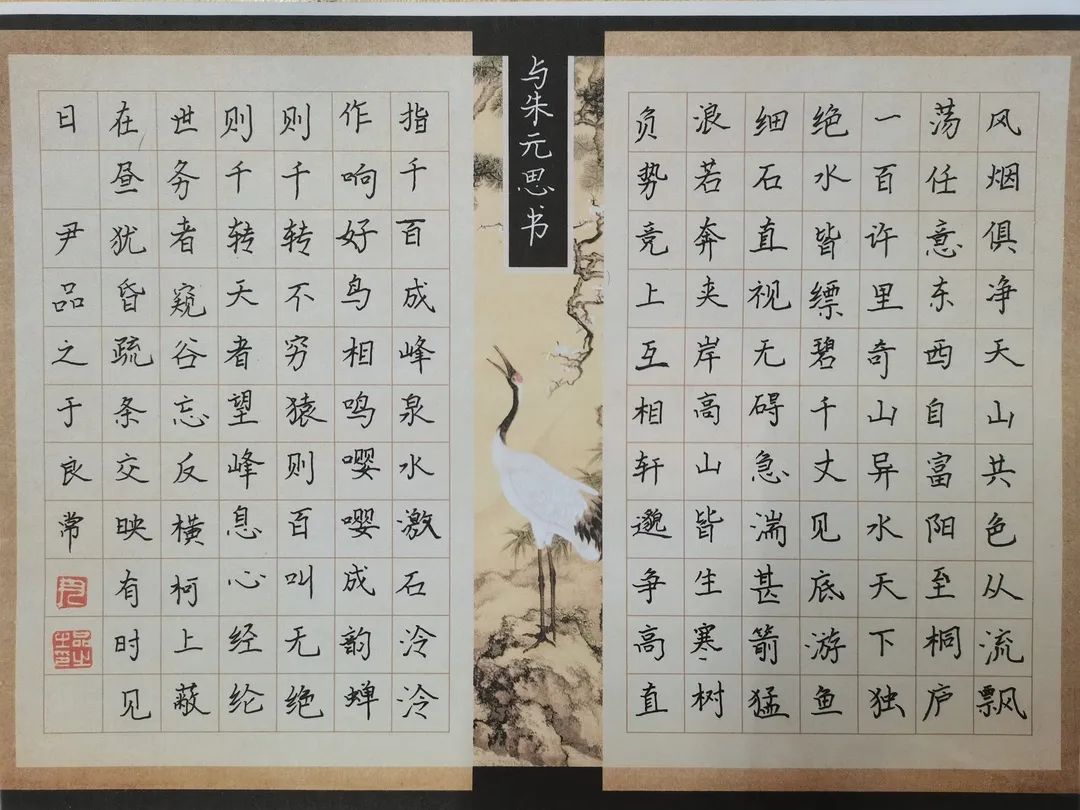 与朱元思书
风烟俱净天山共色从流飘
荡任意东西自富阳至桐庐
一百许里奇山异水天下独
绝水皆缥碧千丈见底游鱼
细石直视无碍急湍甚箭猛
浪若奔夹岸高山皆生寒树
负势竞上互相轩邈争高直
指千百成峰泉水激石泠泠
作响好鸟相鸣嘤嘤成韵蝉
则千转不穷猿则百叫无绝
则千转天者望峰息心经纶
世务者窥谷忘反横柯上蔽
在昼犹昏疏条交映有时见
日 尹品之于良常
尹
品之印